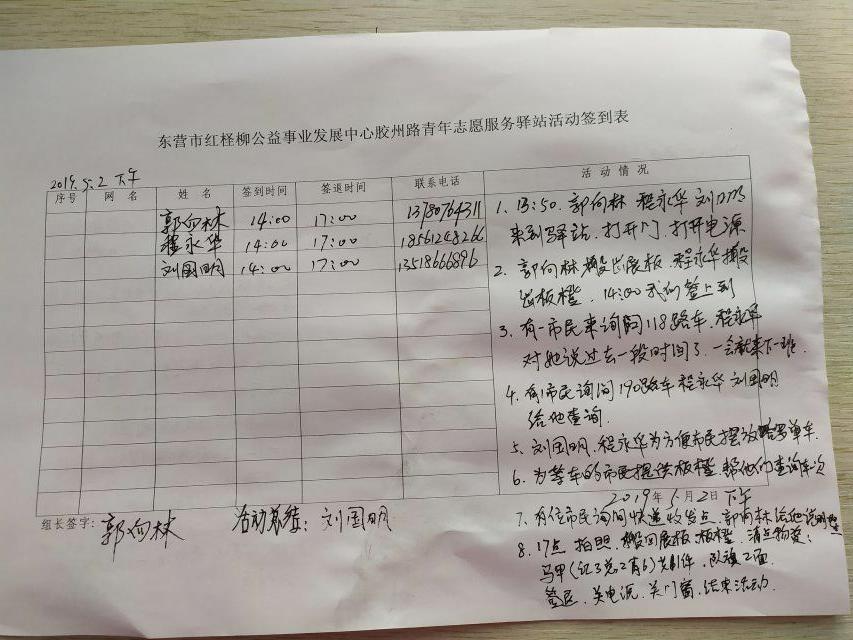 东营市红柽柳公益事业发展中心胶州路青年志愿服务驿站活动签到表
2019.5.2 下午
序号 网 名 姓 名 签到时间 签退时间 联系电话 活动情况
郭向林 14:00 17:00 13780764311
程永华 14:00 17:00 18561248266
刘国明 14:00 17:00 13518666896
1. 13:50. 郭向林 程永华 刘国明
来到驿站、打开门 打开电源
2. 郭向林搬出展板、程永华搬
出板橙、14:00我们签上到
3. 有一市民来询问118路车、程永华
对她说过去一段时间了、一会就来下一班.
4. 有市民询问190路车 程永华 刘国明
给他查询.
5. 刘国明、程永华为方便市民摆放单车.
6. 为等车的市民提供板橙、帮他们查询车次
2019年5月2日下午
7. 有位市民询问快递收发点、郭向林给他说明
8. 17点 拍照、搬回展板、板橙、清点物资:
马甲(红3党2青6)共11件、队旗2面
签退、关电源、关门窗、结束活动.
组长签字: 郭向林 活动总结: 刘国明